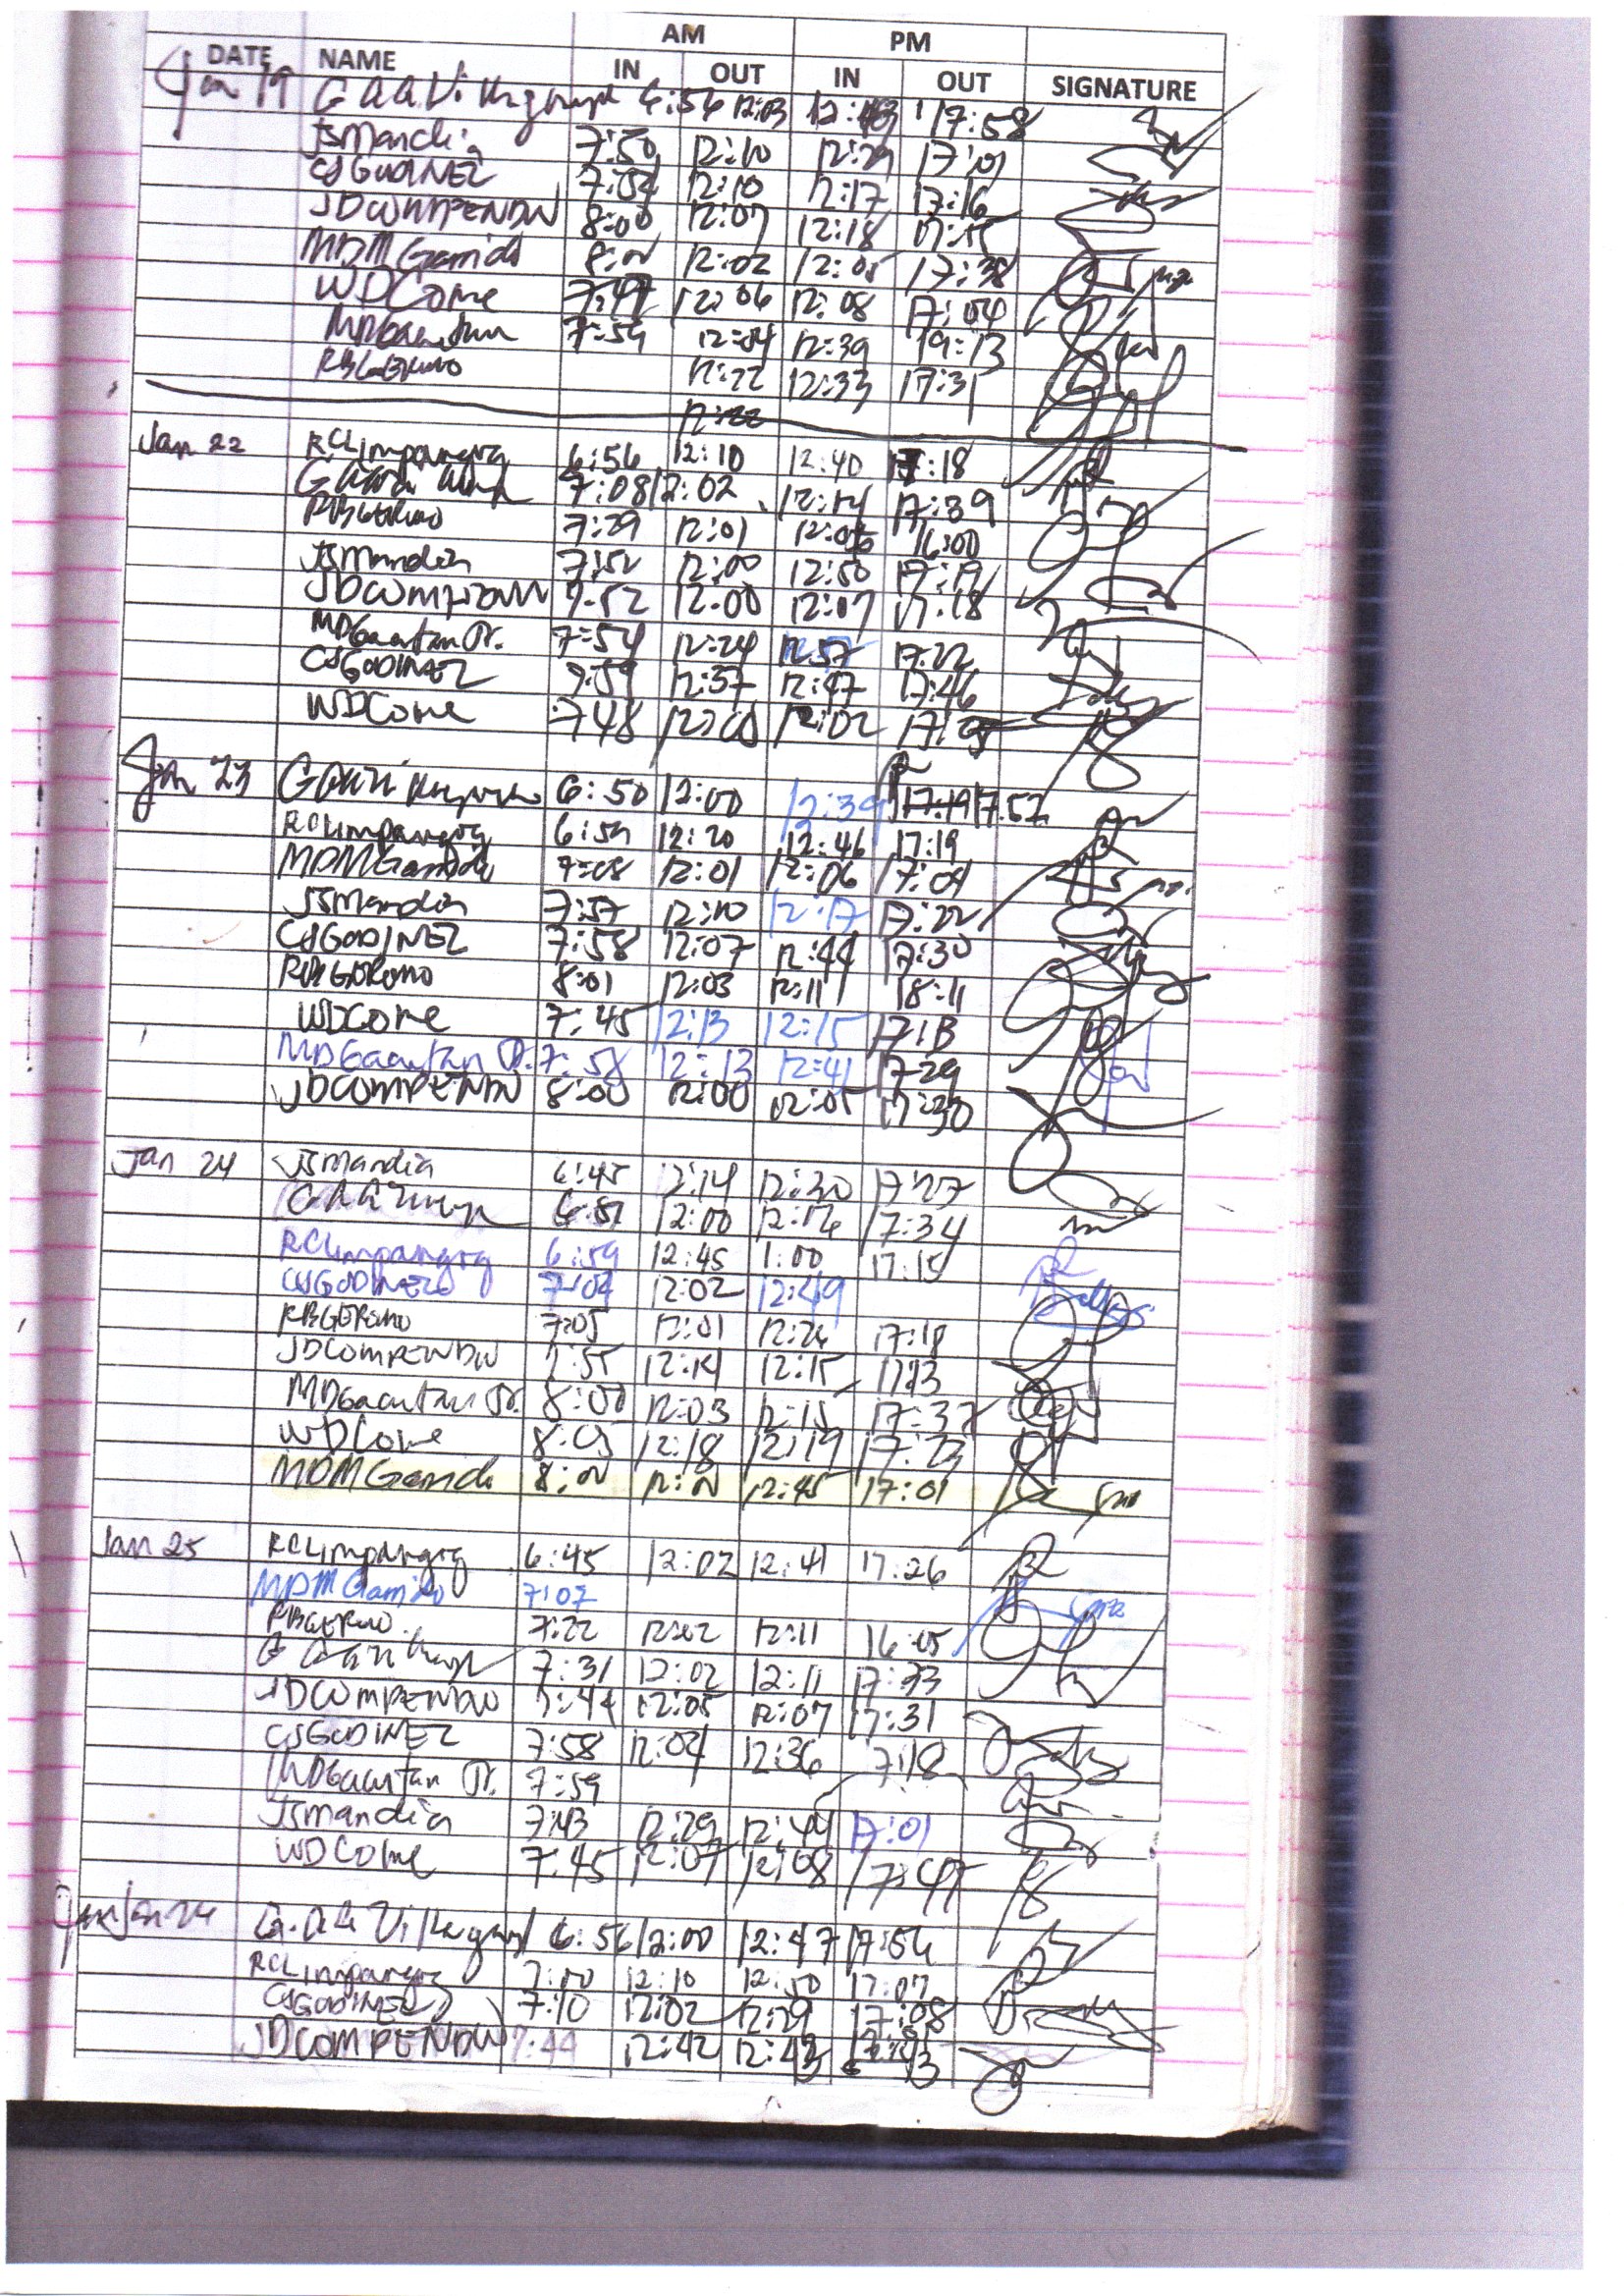 AM PM
DATE NAME IN OUT IN OUT SIGNATURE
Jan 19 6:56 12:03 17:58
JSMandia 7:50 12:10 12:29 17:01
CSGODINEZ 7:54 12:10 12:17 17:16
JDCOMPENDIO 8:00 12:07 12:18 17:15
MDMGamido 12:02 12:05 17:38
WDCone 7:47 12:06 12:08 17:04
7:59 12:04 12:39 19:13
RBGERomo 12:22 12:33 17:31
12:22
Jan 22 RCLimpangog 6:56 12:10 12:40 17:18
7:08 12:02 12:14 17:39
RBGERomo 7:29 12:01 12:06 16:00
JSMandia 7:52 12:00 12:50 17:19
JDCOMPENDIO 7:52 12:00 12:07 17:18
MDGaantan Jr. 7:54 12:24 12:57 17:22
CSGODINEZ 7:59 12:37 12:47 17:46
WDCone 7:48 12:02
Jan 23 6:50 12:00 12:39 17:19 17:52
RCLimpangog 6:59 12:20 12:46 17:19
MDMGamido 7:08 12:01 12:06 17:04
JSMandia 7:57 12:10 12:17 17:22
CSGODINEZ 7:58 12:07 12:44 17:30
RBGERomo 8:01 12:03 12:11 18:11
WDCone 7:45 12:13 12:15 17:13
MDGaantan Jr. 7:58 12:13 12:41 17:29
JDCOMPENDIO 8:00 12:00 12:05 17:30
Jan 24 JSMandia 6:45 12:14 12:30 17:27
6:51 12:00 17:34
RCLimpangog 6:59 12:45 1:00 17:15
CSGODINEZ 7:04 12:02 12:49
RBGERomo 7:05 12:01 12:26 17:18
JDCOMPENDIO 7:55 12:14 12:15 17:13
MDGaantan Jr. 8:00 12:03 12:15 17:37
WDCone 12:18 12:19 17:23
MDMGamido 12:45 17:01
Jan 25 RCLimpangog 6:45 12:02 12:41 17:26
MDMGamido 7:07
RBGERomo 7:22 12:02 12:11 16:05
7:31 12:02 12:11 17:33
JDCOMPENDIO 7:44 12:05 12:07 17:31
CSGODINEZ 7:58 12:04 12:36 17:18
MDGaantan Jr. 7:59
JSMandia 7:43 12:29 12:44 17:01
WDCone 7:45 12:07 12:08 17:47
6:56 12:00 12:47
RCLimpangog 7:00 12:10 12:50 17:07
CSGODINEZ 7:10 12:02 12:29 17:08
JDCOMPENDIO 7:44 12:42 12:43